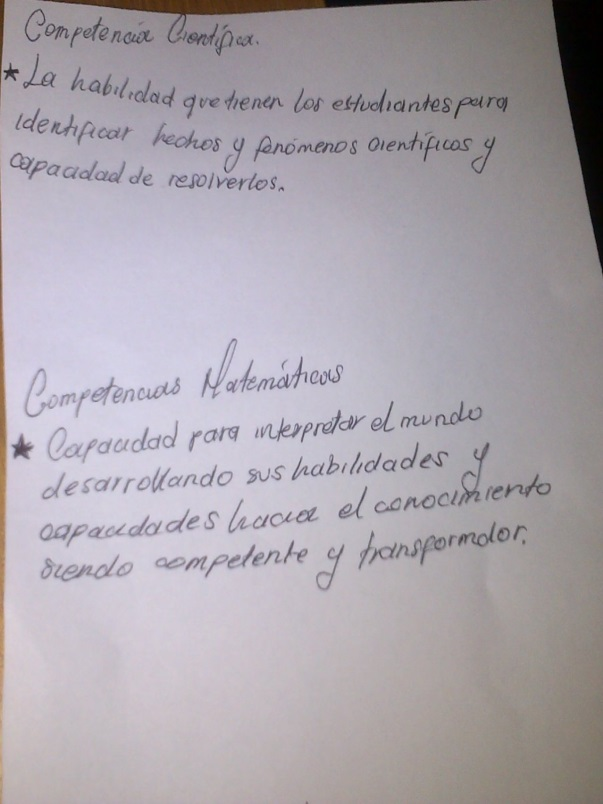 Competencia Científica.
★ La habilidad que tienen los estudiantes para
identificar hechos y fenómenos científicos y
capacidad de resolverlos.
Competencias Matemáticas
★ Capacidad para interpretar el mundo
desarrollando sus habilidades y
capacidades hacia el conocimiento
siendo competente y transformdor.